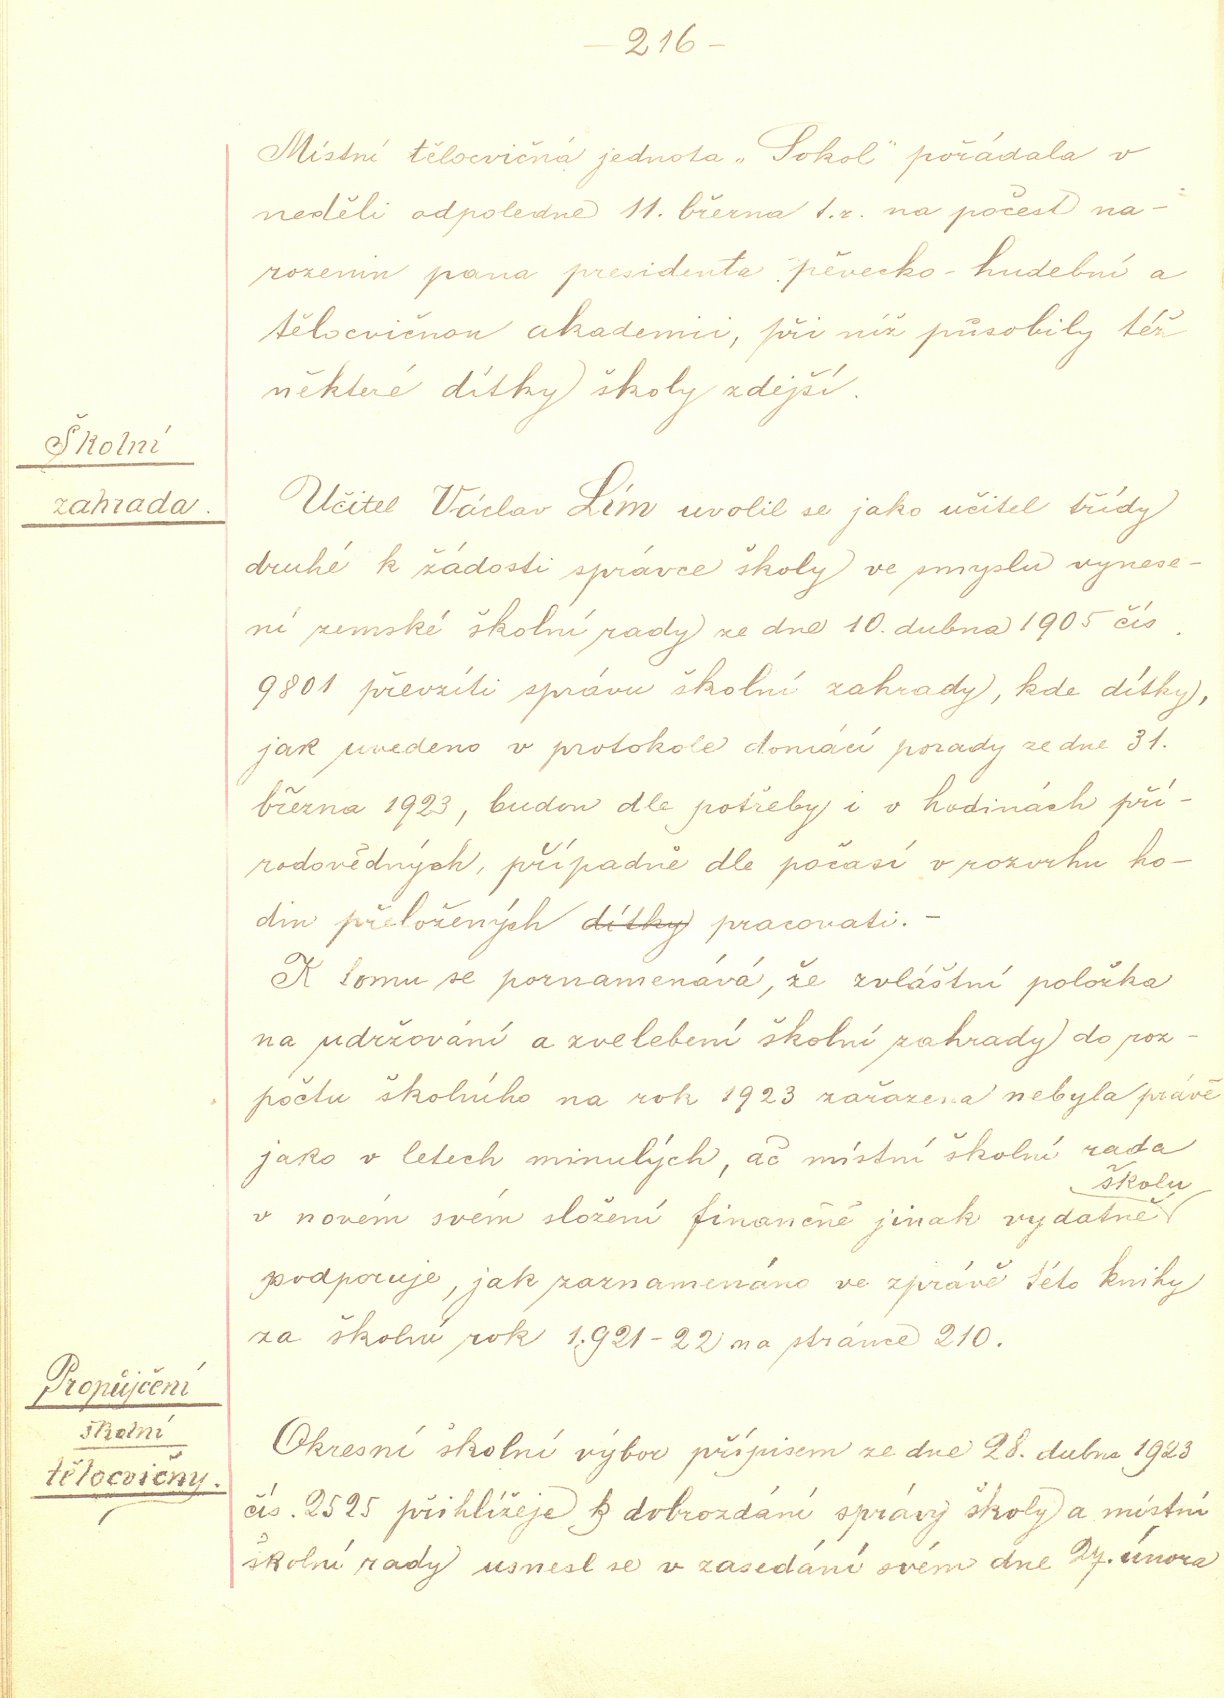 – 216 –
Místní tělocvičná jednota „Sokol" pořádala v
neděli odpoledne 11. března t.r. na počest na-
rozenin pana presidenta pěvecko-hudební a
tělocvičnou akademii, při níž působily též
některé dítky školy zdejší.
Školní
zahrada.
Učitel Václav Lím uvolil se jako učitel třídy
druhé k žádosti správce školy ve smyslu vynese-
ní zemské školní rady ze dne 10. dubna 1905 čís.
9801 převzíti správu školní zahrady, kde dítky,
jak uvedeno v protokole domácí porady ze dne 31.
března 1923, budou dle potřeby i v hodinách pří-
rodovědných, případně dle počasí v rozvrhu ho-
din přeložených dítky pracovati. –
K tomu se poznamenává, že zvláštní položka
na udržování a zvelebení školní zahrady do roz-
počtu školního na rok 1923 zařazena nebyla právě
jako v letech minulých, ač místní školní rada
školu
v novém svém složení finančně jinak vydatně
podporuje, jak zaznamenáno ve zprávě této knihy
za školní rok 1921–22 na stránce 210.
Propůjčení
školní
tělocvičny.
Okresní školní výbor přípisem ze dne 28. dubna 1923
čís. 2525 přihlížeje k dobrozdání správy školy a místní
školní rady usnesl se v zasedání svém dne 27. února